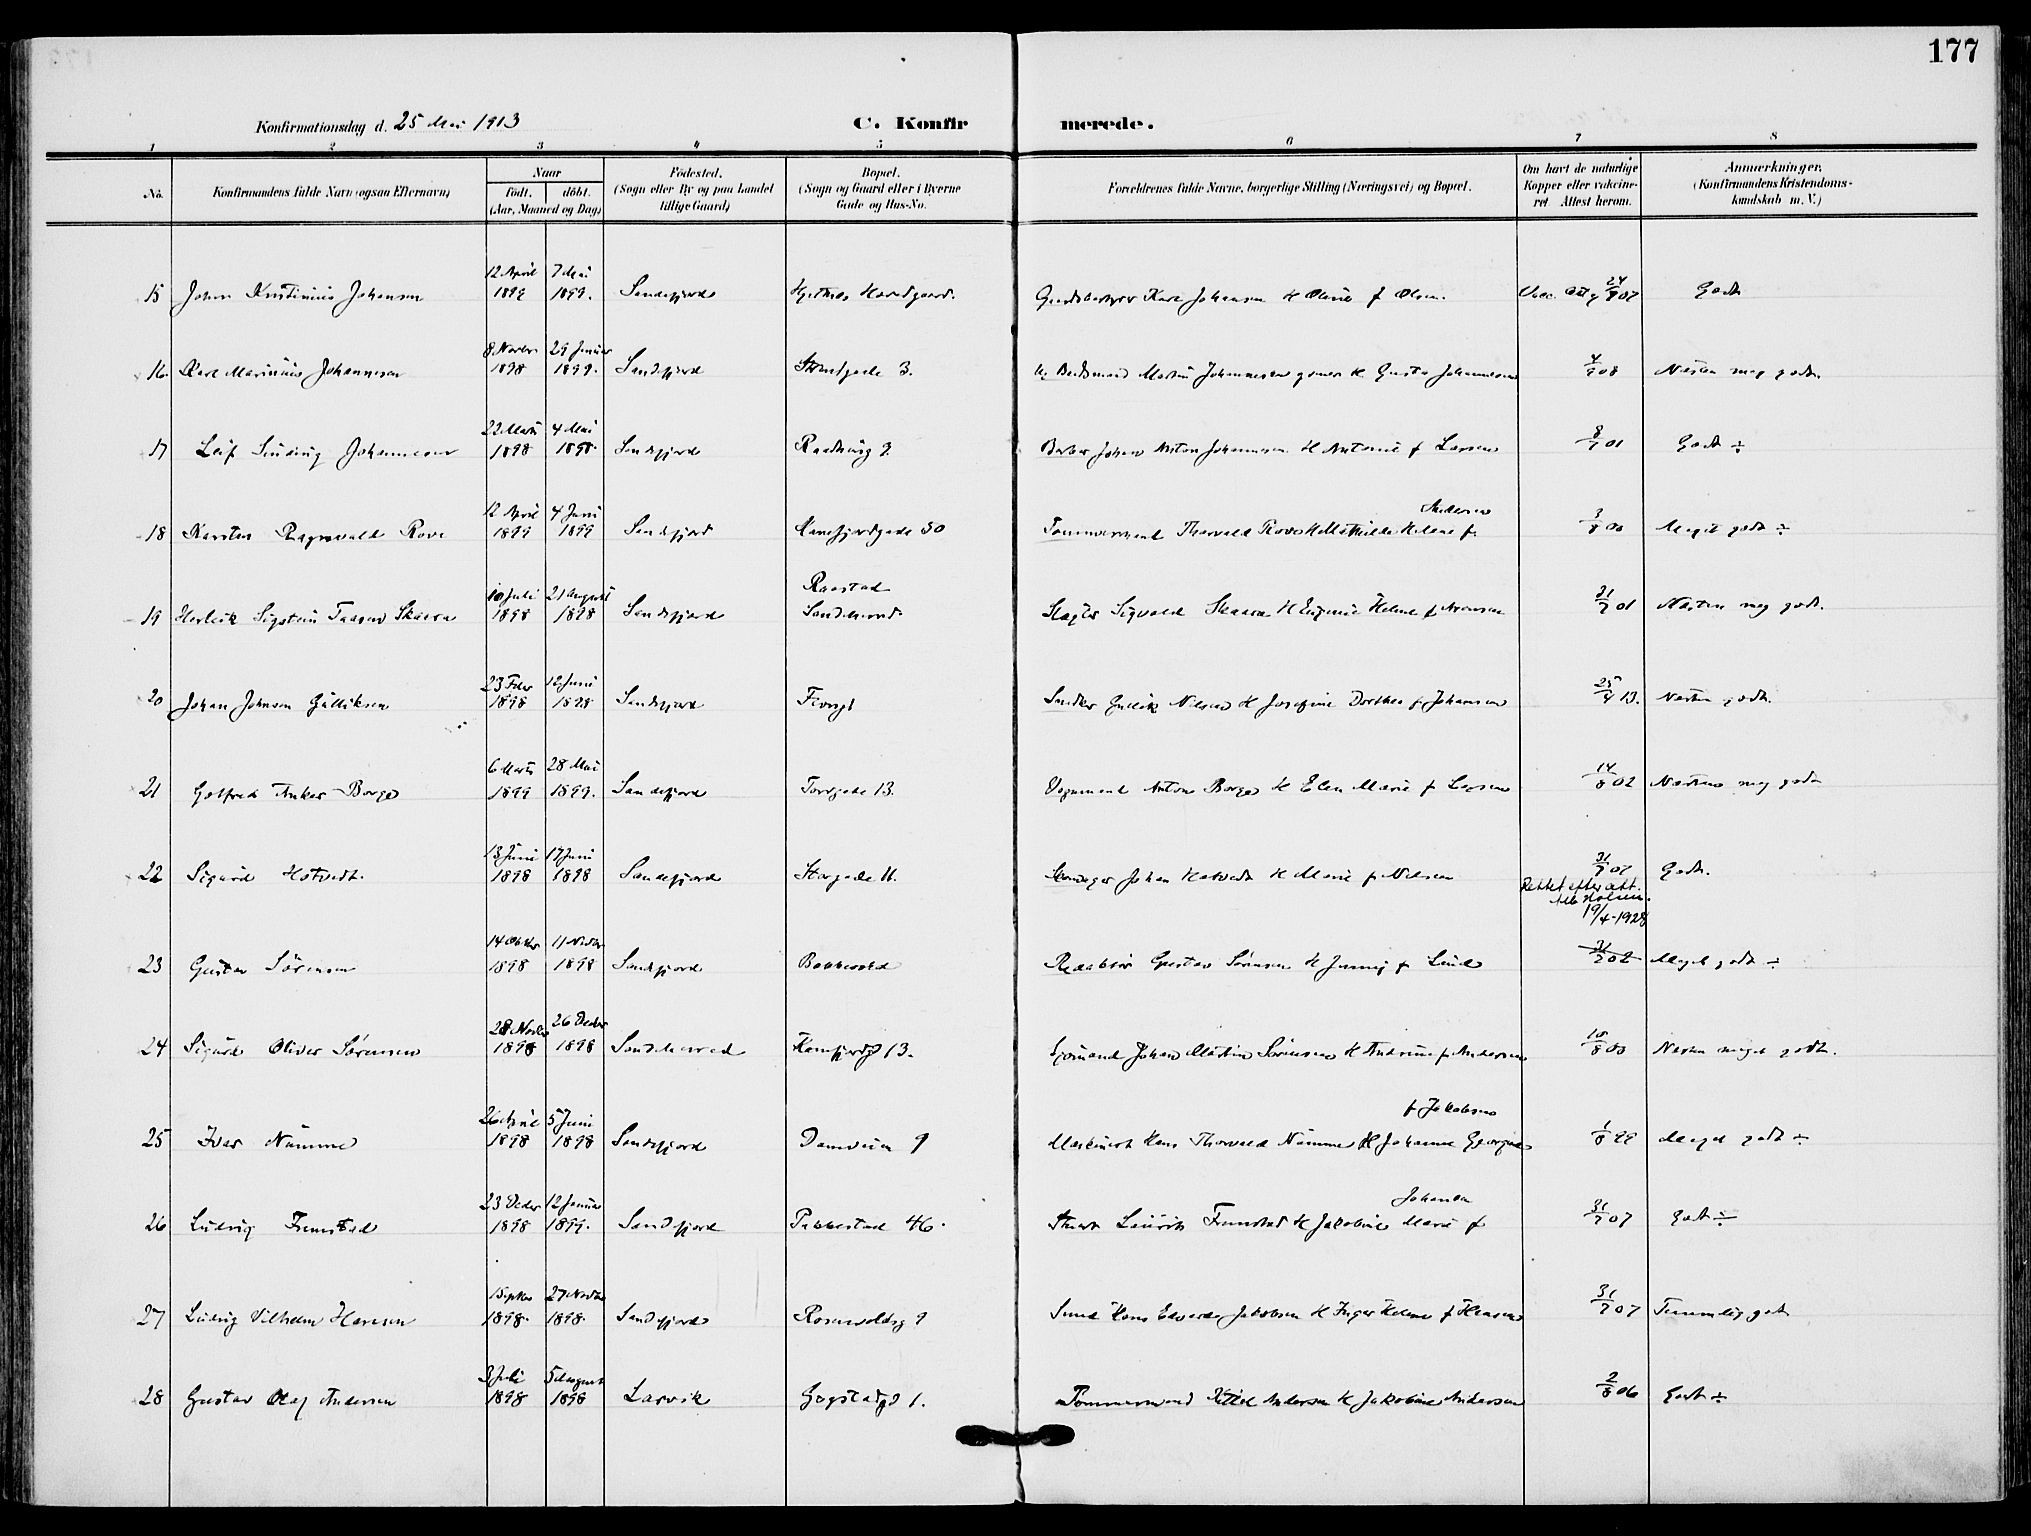 177
Konfirmationsdag d. 25 Mai 1913
C. Konfirmerede.
1 2 3 4 5 6 7 8
No. Konfirmandens fulde Navn (ogsaa Efternavn) Naar født. døbt. (Aar, Maaned og Dag) Fødested. (Sogn eller By og paa Landet tillige Gaard) Bopæl. (Sogn og Gaard eller i Byerne Gade og Hus-No. Forældrenes fulde Navne, borgerlige Stilling (Næringsvei) og Bopæl. Om havt de naturlige Kopper eller vakcineret. Attest herom. Anmerkninger. (Konfirmandens Kristendomskundskab m. V.)
15 Johan Kristinius Johansen 12 April 1899 7 Mai 1899. Sandefjord Karl Johansen H Marie f Olsen. Vacc. Att 24/9 07 Godt
16 Karl Marinius Johannesen 8 Novbr 1898 29 Januar 1899. Sandefjord 3. Martin Johannesen H Johannesen 4/9 08 Næsten meg godt.
17 Leif Sinding Johannesen 22 Marts 1898 4 Mai 1898. Sandefjord Raadhusg 2 Barber Johan Anton Johannesen H Antonie f Larsen 8/7 01 Godt ÷
18 Karsten Ragnvald Rove 12 April 1899 4 Juni 1899 Sandefjord 50 Tømmermand Thorvald Rove H Mathilde Helene f. Andersen 3/8 00 Meget godt ÷
19 Sigstein Skaara 10 Juli 1898 21 August 1898 Sandefjord Raastad Sandeherred. Slagter Sigvald Skaara H Eugenie Helene f Aronsen 31/7 01 Næsten meg godt.
20 Johan Johnsen Gulliksen 23 Febr 1898 12 Juni 1898 Sandefjord Gullik Nilsen H Josefine Dorthea f Johansen 25/4 13. Næsten godt.
21 Gotfred Anker Borge 6 Marts 1899 28 Mai 1899. Sandefjord Torvgade 13. Vognmand Anton Borge H Elen Marie f Larsen 14/8 02 Næsten meg godt
22 Sigurd Hotvedt. 13 Juni 1898 17 Juni 1898 Sandefjord Storgade 11. Johan Hotvedt H Marie f Nilsen 31/7 07 Godt.
Rettet efter att. 19/4-1928
23 Gustav Sørensen 14 Oktbr 1898 11 Novbr 1898 Sandefjord Redaktør Gustav Sørensen H Jenny f Lund 31/7 02 Meget godt ÷
24 Sigurd Oliver Sørensen 28 Novbr 1898 26 Decbr 1898 Sandeherred 13. Sjømand Johan Martin Sørensen H Andrine f Andersen 10/8 00 Næsten meget godt.
25 Ivar Numme 26 April 1898 5 Juni 1898 Sandefjord Damveien 9 Maskinist Hans Thorvald Numme H Johanne Georgine f Jakobsen 1/8 99 Meget godt ÷
26 Ludvig Fremstad 23 Decbr 1898 12 Januar 1899. Sandefjord Pukkestad 46. Laurits Fremstad H Jakobine Marie f Johansen 31/7 07 Godt ÷
27 Ludvig Vilhelm Hansen 1 Septbr 1898. 27 Novbr 1898. Sandefjord Rosenvoldsg 9 Smed Hans Edvard Jakobsen H Inger Helene f Hansen 31/7 07 Temmelig godt
28 Gustav Olaf Andersen 3 Juli 1898 5 August 1898 Larvik Gogstadgd 1. Tømmermand Andersen H Jakobine Andersen 2/8 06 Godt ÷